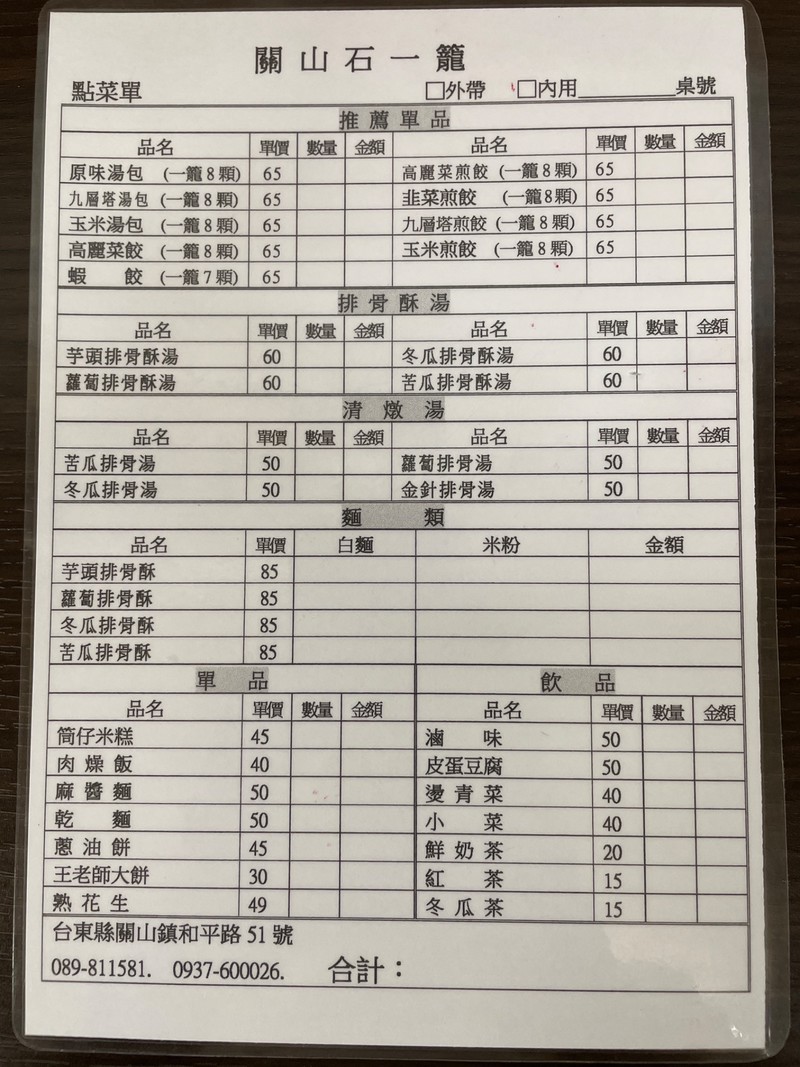 關山石一籠
點菜單 □外帶 □內用________桌號
推薦單品
品名 單價 數量 金額 品名 單價 數量 金額
原味湯包 (一籠8顆) 65 高麗菜煎餃 (一籠8顆) 65
九層塔湯包 (一籠8顆) 65 韭菜煎餃 (一籠8顆) 65
玉米湯包 (一籠8顆) 65 九層塔煎餃 (一籠8顆) 65
高麗菜餃 (一籠8顆) 65 玉米煎餃 (一籠8顆) 65
蝦 餃 (一籠7顆) 65
排骨酥湯
品名 單價 數量 金額 品名 單價 數量 金額
芋頭排骨酥湯 60 冬瓜排骨酥湯 60
蘿蔔排骨酥湯 60 苦瓜排骨酥湯 60
清燉湯
品名 單價 數量 金額 品名 單價 數量 金額
苦瓜排骨湯 50 蘿蔔排骨湯 50
冬瓜排骨湯 50 金針排骨湯 50
麵 類
品名 單價 白麵 米粉 金額
芋頭排骨酥 85
蘿蔔排骨酥 85
冬瓜排骨酥 85
苦瓜排骨酥 85
單 品 飲 品
品名 單價 數量 金額 品名 單價 數量 金額
筒仔米糕 45 滷 味 50
肉燥飯 40 皮蛋豆腐 50
麻醬麵 50 燙青菜 40
乾 麵 50 小 菜 40
蔥油餅 45 鮮奶茶 20
王老師大餅 30 紅 茶 15
熟花生 49 冬瓜茶 15
台東縣關山鎮和平路51號
089-811581. 0937-600026. 合計：